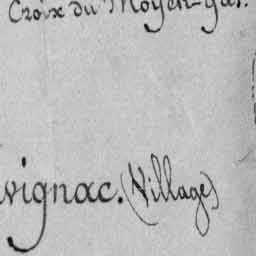 Croix du Moyen-Gué.
vignac. (Village)